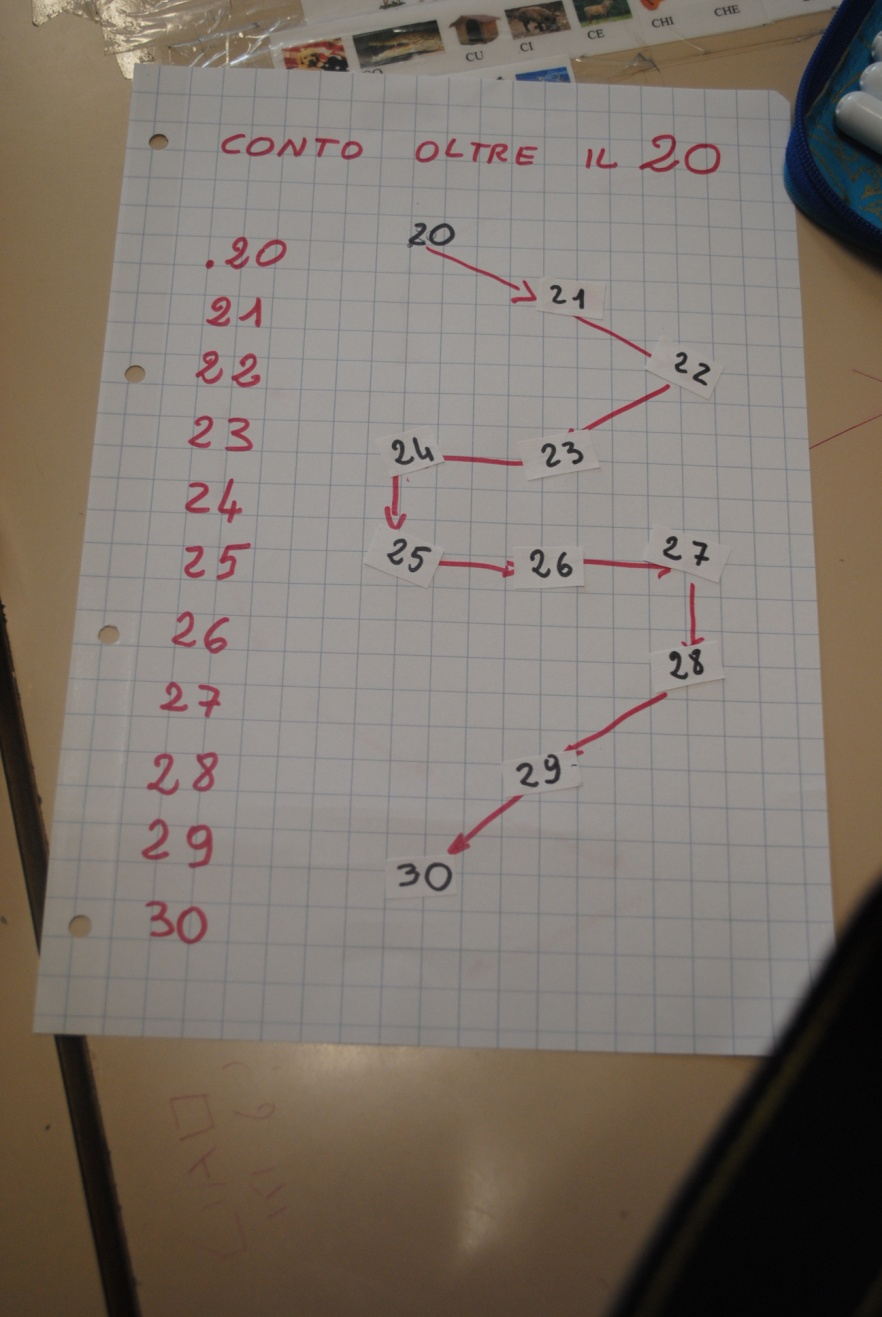 CU CI CE CHI CHE
CONTO OLTRE IL 20
.20
21
22
23
24
25
26
27
28
29
30
20
21
22
24 23
25 26 27
28
29
30